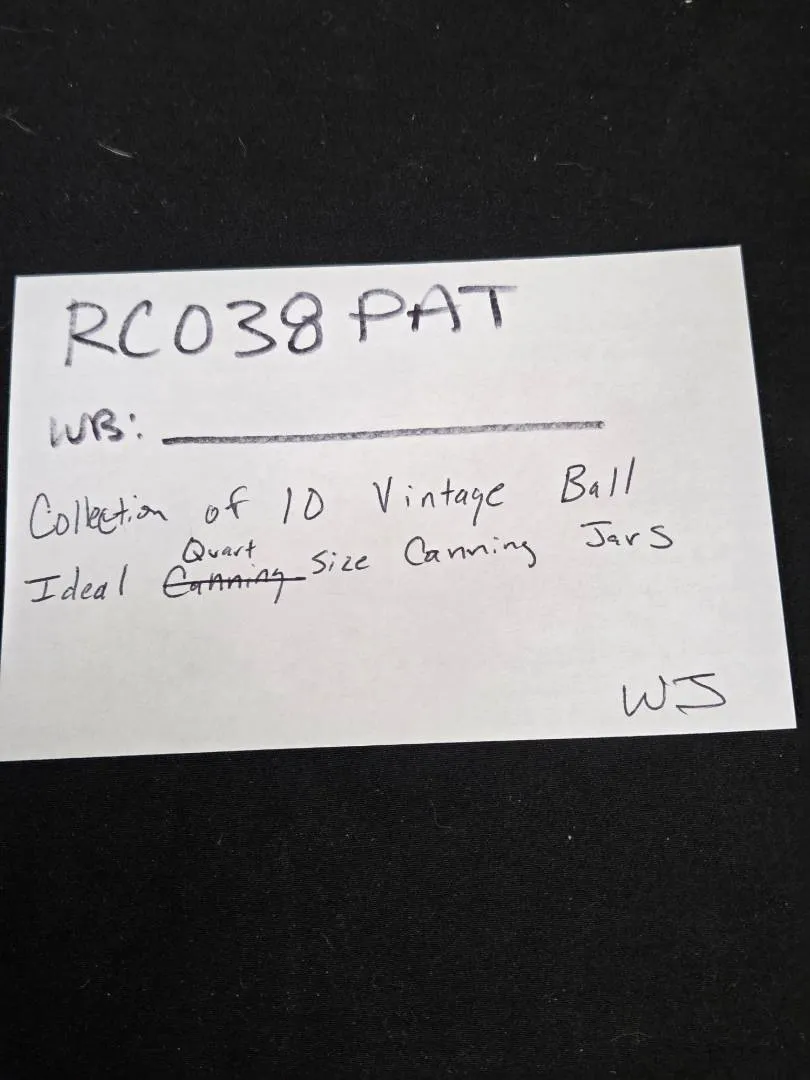 RC038 PAT
WB:
Collection of 10 Vintage Ball
Quart
Ideal Canning size Canning Jars
WJ